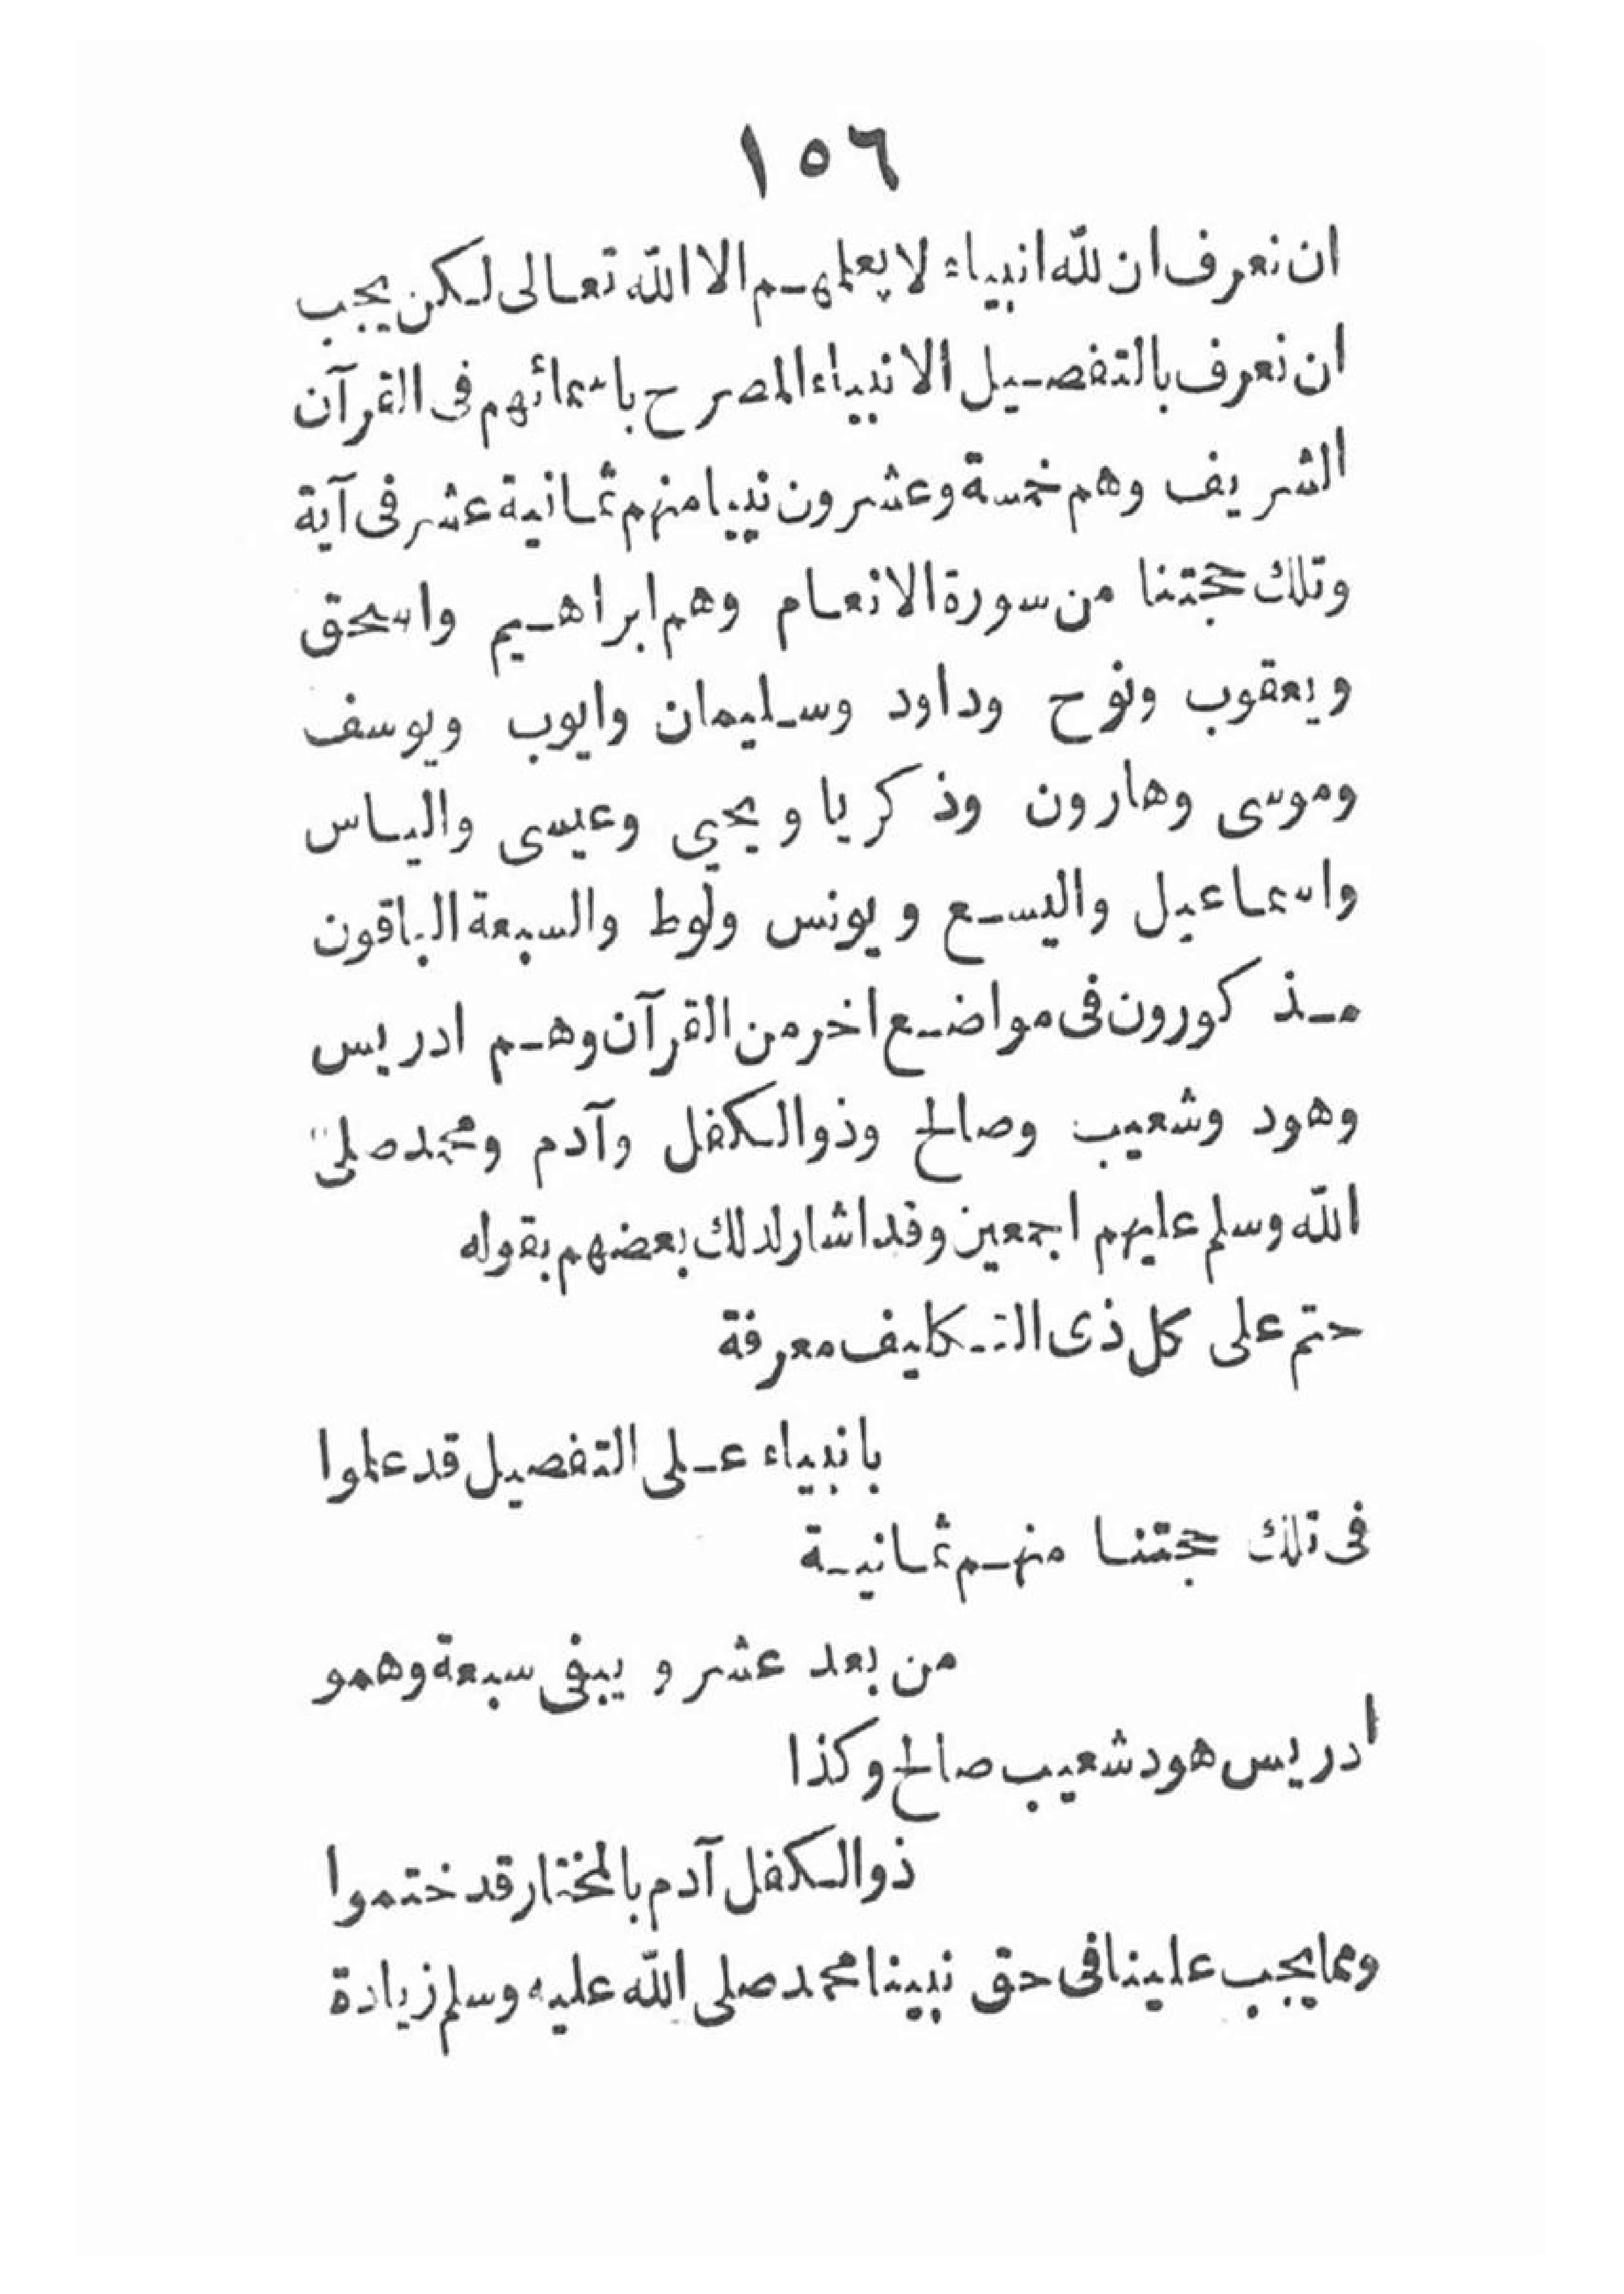 ١٥٦
ان نعرف ان لله انبياء لا يعلمهم الا الله تعالى لكن يجب
ان نعرف بالتفصيل الانبياء المصرح باسمائهم فى القرآن
الشريف وهم خمسة وعشرون نبيا منهم ثمانية عشر فى آية
وتلك حجتنا من سورة الانعام وهم ابراهيم واسحق
ويعقوب ونوح وداود وسليمان وايوب ويوسف
وموسى وهارون وذكريا ويحيي وعيسى والياس
واسماعيل واليسع ويونس ولوط والسبعة الباقون
مذكورون فى مواضع اخر من القرآن وهم ادريس
وهود وشعيب وصالح وذوالكفل وآدم ومحمد صلى
الله وسلم عليهم اجمعين وقد اشار لذلك بعضهم بقوله
حتم على كل ذى التكليف معرفة
بانبياء على التفصيل قد علموا
فى تلك حجتنا منهم ثمانية
من بعد عشر ويبقى سبعة وهمو
ادريس هود شعيب صالح وكذا
ذوالكفل آدم بالمختار قد ختموا
ومما يجب علينا فى حق نبينا محمد صلى الله عليه وسلم زيادة